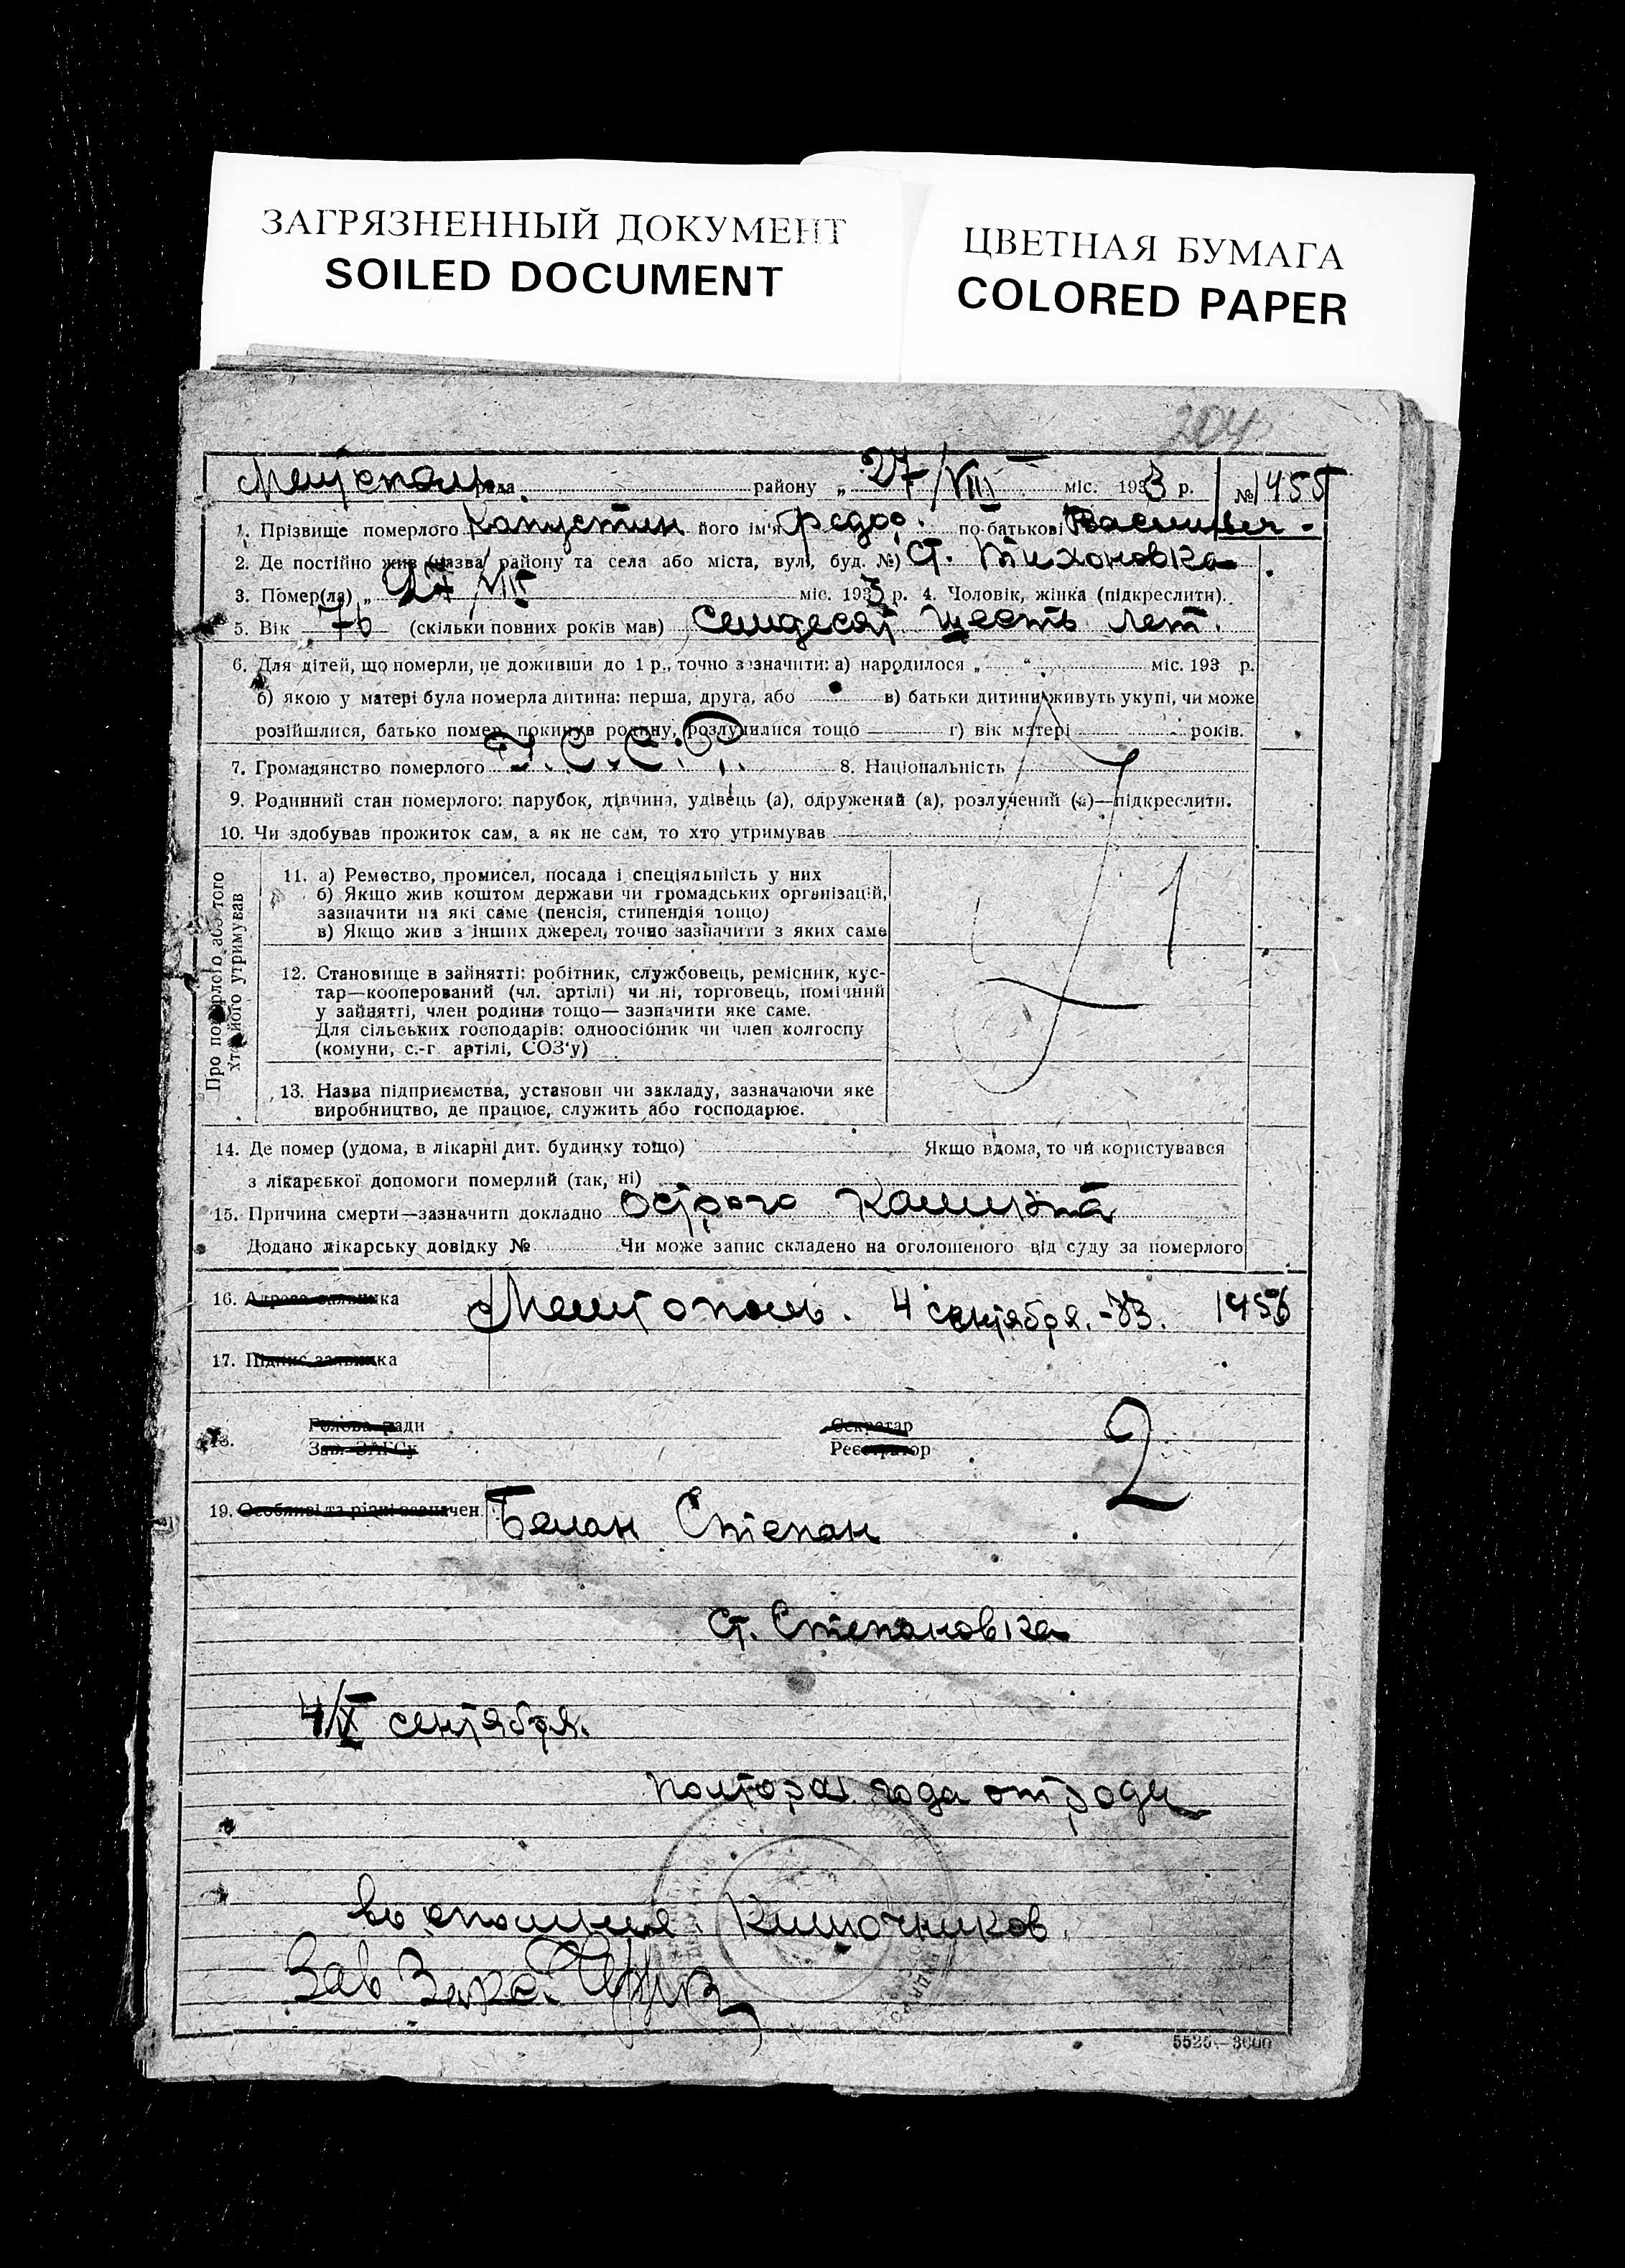 ЗАГРЯЗНЕННЫЙ ДОКУМЕНТ
SOILED DOCUMENT
ЦВЕТНАЯ БУМАГА
COLORED PAPER
204
района „ 27/VIII міс. 1933 р. № 1455
1. Прізвище померлого Капустин його ім'я Федор. по-батькові Васильев.
2. Де постійно жив (назва району та села або міста, вул., буд. №) ст. Тихоновка
3. Помер(ла) „ 27/VIII міс. 1933 р. 4. Чоловік, жінка (підкреслити).
5. Вік 76 (скільки повних років мав) Семдесят шесть лет.
6. Для дітей, що померли, не доживши до 1 р., точно зазначити: а) народилося „ “ міс. 193 р.
б) якою у матері була померла дитина: перша, друга, або в) батьки дитини живуть укупі, чи може
розійшлися, батько помер, покинув родину, розлучилися тощо г) вік матері років.
7. Громадянство померлого У.С.С.Р. 8. Національність
9. Родинний стан померлого: парубок, дівчина, удівець (а), одружений (а), розлучений (а)—підкреслити.
10. Чи здобував прожиток сам, а як не сам, то хто утримував
Про померлого або того
хто його утримував
11. а) Ремество, промисел, посада і спеціяльність у них
б) Якщо жив коштом держави чи громадських організацій,
зазначити на які саме (пенсія, стипендія тощо)
в) Якщо жив з інших джерел, точно зазначити з яких саме
1
12. Становище в зайнятті: робітник, службовець, ремісник, кус-
тар—кооперований (чл. артілі) чи ні, торговець, помічний
у зайнятті, член родини тощо— зазначити яке саме.
Для сільських господарів: одноосібник чи член колгоспу
(комуни, с.-г артілі, СОЗ'у)
13. Назва підприємства, установи чи закладу, зазначаючи яке
виробництво, де працює, служить або господарює.
14. Де помер (удома, в лікарні дит. будинку тощо) Якщо вдома, то чи користувався
з лікарської допомоги померлий (так, ні)
15. Причина смерти—зазначити докладно
Додано лікарську довідку № Чи може запис складено на оголошеного від суду за померлого
16. Адреса заявника Мелитополь. 4 сентября.-33. 1456
17. Підпис заявника
18. Голова ради Секретар
Зав. ЗАГСу Реєстратор
2
19. Особливі та різні зазначен. Белан Степан
ст. Степановка
4/IX сентября.
полтора года от роду
воспаления кишочников.
Зав Загс.
5525—3000